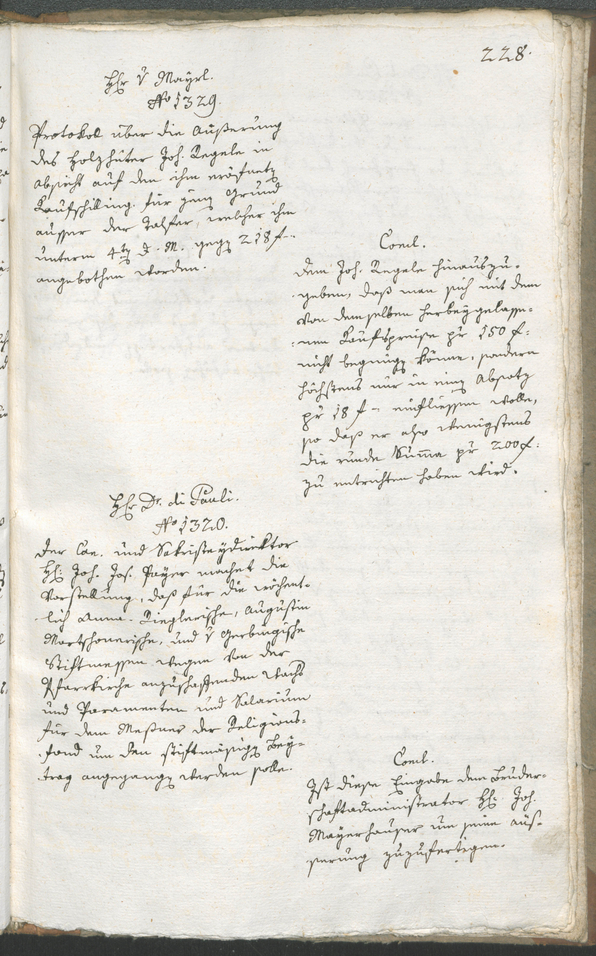 228.
Hr. v Mayrl.
No 1329.
Protokoll über die Äußerung
des Holzhüter Joh. Regele in
Absicht auf den ihm eröfneten
Kaufschilling für Grund
ausser der Talfer, welcher ihm
unterm 4ten d. M. gegen 218 f
angebothen worden.
Concl.
Dem Joh. Regele hinauszu-
geben, daß man sich mit dem
von demselben herbeygelasse-
nen Kaufspreise pr 150 f.
nicht begnügen könne, sondern
höchstens nur in einen Absatz
pr 18 f einfliessen wolle,
so daß er also wenigstens
die runde Summa pr 200 f.
zu entrichten haben wird.
Hr. Dr. di Pauli.
No 1320.
Der Can. und Sakristeydirektor
Hr. Joh. Jos. Payer machet die
Vorstellung, daß für die wöchent-
lich Anna-Zieglerische, Augustin
Martschonerische, und v Gerbingische
Stiftmessen wegen von der
Pfarrkirche anzuschaffenden Wachs
und Paramenten und Salarium
für den Meßner der Religions-
fond um den stiftmäsigen Bey-
trag angegangen werden solle.
Concl.
Ist diese Eingabe dem Bruder-
schaftadministrator Hr. Joh.
Mayrhauser um seine Äus-
serung zuzufertigen.